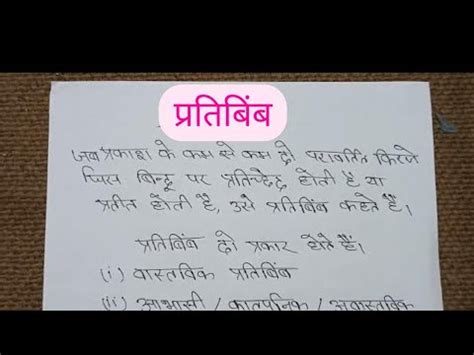 प्रतिबिंब
जब प्रकाश के कम से कम दो परावर्तित किरणें
जिस बिन्दू पर प्रतिच्छेद होती हैं या
प्रतीत होती है, उसे प्रतिबिंब कहते हैं।
प्रतिबिंब दो प्रकार होते हैं।
(i) वास्तविक प्रतिबिंब
(ii) आभासी / काल्पनिक / अवास्तविक